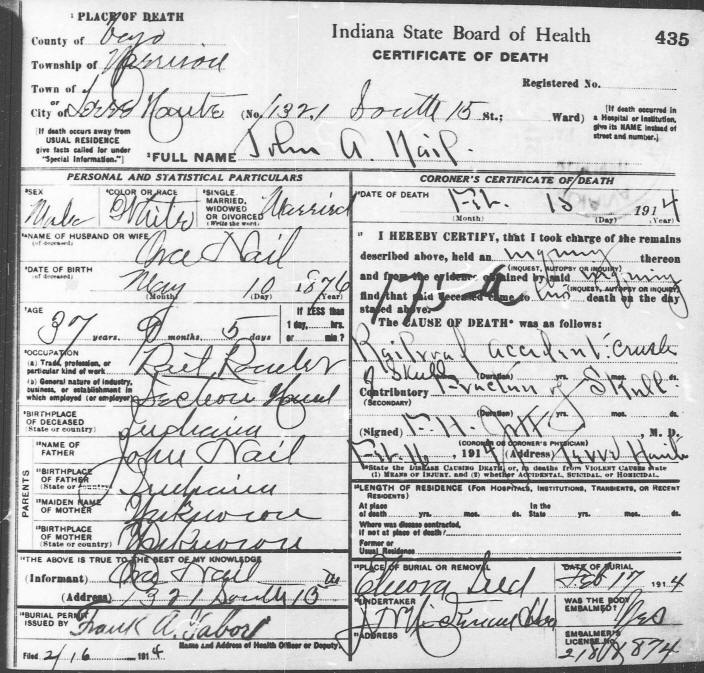 ¹PLACE OF DEATH
County of Vigo
Township of Harrison
Town of
or
City of Terre Haute
[If death occurs away from
USUAL RESIDENCE
give facts called for under
"Special Information."]
Indiana State Board of Health 435
CERTIFICATE OF DEATH
Registered No.
(No. 1321 South 15 St.; Ward)
[If death occurred in
a Hospital or Institution,
give its NAME instead of
street and number.]
²FULL NAME John A. Nail.
PERSONAL AND STATISTICAL PARTICULARS
³SEX Male
⁴COLOR OR RACE White
⁵SINGLE, MARRIED, WIDOWED OR DIVORCED (Write the word) Married
NAME OF HUSBAND OR WIFE Nail
(of deceased)
DATE OF BIRTH May 10 1876
(of deceased) (Month) (Day) (Year)
AGE 37 years, months, 5 days
If LESS than
1 day,....hrs.
or ....min?
OCCUPATION
(a) Trade, profession, or
particular kind of work
(b) General nature of industry,
business, or establishment in
which employed (or employer) Section Hand
BIRTHPLACE
OF DECEASED
(State or country) Indiana
PARENTS
NAME OF
FATHER John Nail
BIRTHPLACE
OF FATHER
(State or country) Indiana
MAIDEN NAME
OF MOTHER Unknown
BIRTHPLACE
OF MOTHER
(State or country) Unknown
THE ABOVE IS TRUE TO THE BEST OF MY KNOWLEDGE
(Informant) Nail
(Address) 1321 South 15
BURIAL PERMIT
ISSUED BY Frank A. Tabor
Name and Address of Health Officer or Deputy.
Filed 2/16 1914
CORONER'S CERTIFICATE OF DEATH
DATE OF DEATH Feb. 15 1914
(Month) (Day) (Year)
I HEREBY CERTIFY, that I took charge of the remains
described above, held an inquiry thereon
(INQUEST, AUTOPSY OR INQUIRY)
and from the evidence obtained by said inquiry
(INQUEST, AUTOPSY OR INQUIRY)
find that said deceased came to his death on the day
stated above.
The CAUSE OF DEATH* was as follows:
Railroad accident: crush
of Skull
(Duration) yrs. mos. ds.
Contributory Fracture of Skull
(SECONDARY)
(Duration) yrs. mos. ds.
(Signed) M. D.
(CORONER OR CORONER'S PHYSICIAN)
Feb. 16, 1914 (Address) Terre Haute
*State the DISEASE CAUSING DEATH; or, in deaths from VIOLENT CAUSES state
(1) MEANS OF INJURY, and (2) whether ACCIDENTAL, SUICIDAL, or HOMICIDAL.
LENGTH OF RESIDENCE (FOR HOSPITALS, INSTITUTIONS, TRANSIENTS, OR RECENT
RESIDENTS)
At place
of death yrs. mos. ds.
In the
State yrs. mos. ds.
Where was disease contracted,
if not at place of death?
Former or
Usual Residence
PLACE OF BURIAL OR REMOVAL
DATE OF BURIAL Feb 17 1914
UNDERTAKER
ADDRESS
WAS THE BODY
EMBALMED? Yes
EMBALMER'S
LICENSE No.